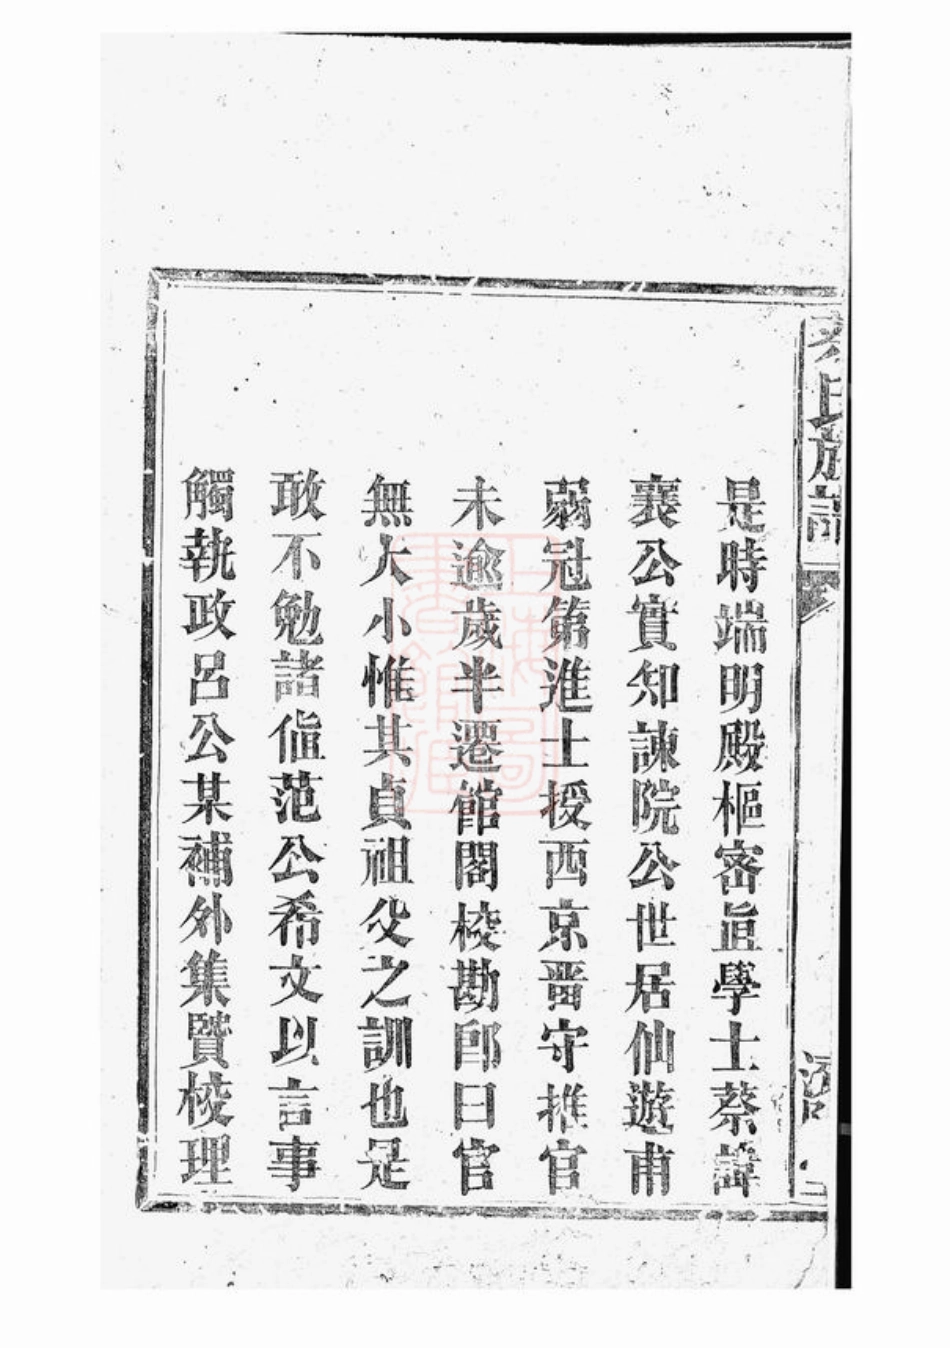 是時端明殿樞密直學士蔡諱
襄公實知諫院公世居仙遊甫
弱冠第進士授西京畱守推官
未逾歲半遷館閣校勘卽曰官
無大小惟其貞祖父之訓也是
敢不勉諸值范公希文以言事
觸執政呂公某補外集賢校理
氏族譜